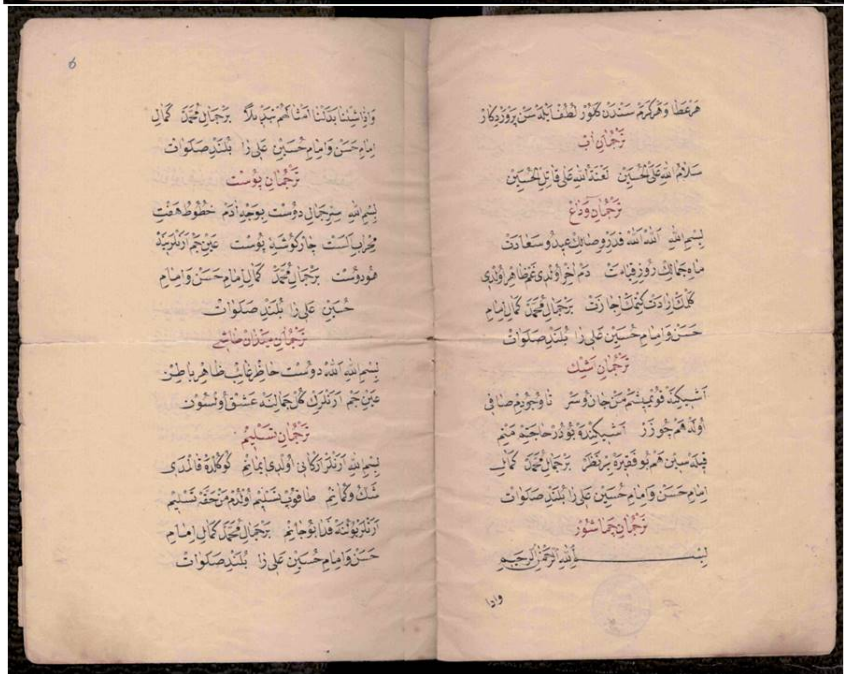 هر عطا و هر کرم سندن کلور لطف ایله سن پروردکار
ترجمان اب
سلام الله علی الحسین لعنة الله علی قاتل الحسین
ترجمان وداع
بسم الله الله الله قدر وصالك عید و سعادت
ماه جمالك روز قیامت دم اخر اولدی غم ظاهر اولدی
کلك ارادت کتمك اجازت بر جمال محمد کمال امام
حسن و امام حسین علی را بلند صلوات
ترجمان اشیك
اشیکنه قویمشم من جان و سر تا وجودم صافی
اوله همچو زر اشیکنده بودر حاجتم منم
قیله سین هم بو فقیره بر نظر بر جمال محمد کمال
امام حسن و امام حسین علی را بلند صلوات
ترجمان جماشور
بسم الله الرحمن الرحیم
واذا
6
واذا شئنا بدلنا امثالهم تبدیلا بر جمال محمد کمال
امام حسن و امام حسین علی را بلند صلوات
ترجمان پوست
بسم الله سر جمال دوست بوجه ادم خطوط هفت
محراب الست چار کوشهٔ پوست عین جم ارنلر
هو دوست بر جمال محمد کمال امام حسن و امام
حسین علی را بلند صلوات
ترجمان میدان طاشی
بسم الله الله دوست حاظر غایب ظاهر باطن
عین جم ارنلرك کل جمالنه عشق اولسون
ترجمان تسلیم
بسم الله ارنلر ارکانی اولدی ایمانم کوکلده قالمدی
شك و کمانم طاقوب تسلیم اولدم من حقه تسلیم
ارنلر یولنه فدا بو جانم بر جمال محمد کمال امام
حسن و امام حسین علی را بلند صلوات